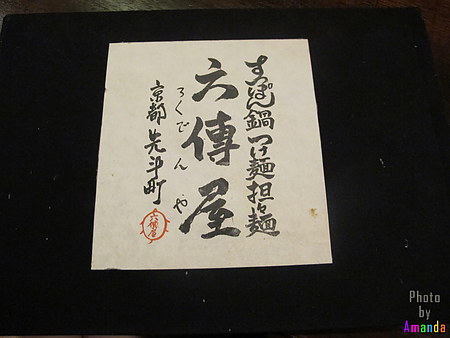 すっぽん鍋つけ麺担々麺
六傳屋
ろくでんや
京都先斗町
六傳屋
Photo
by
Amanda